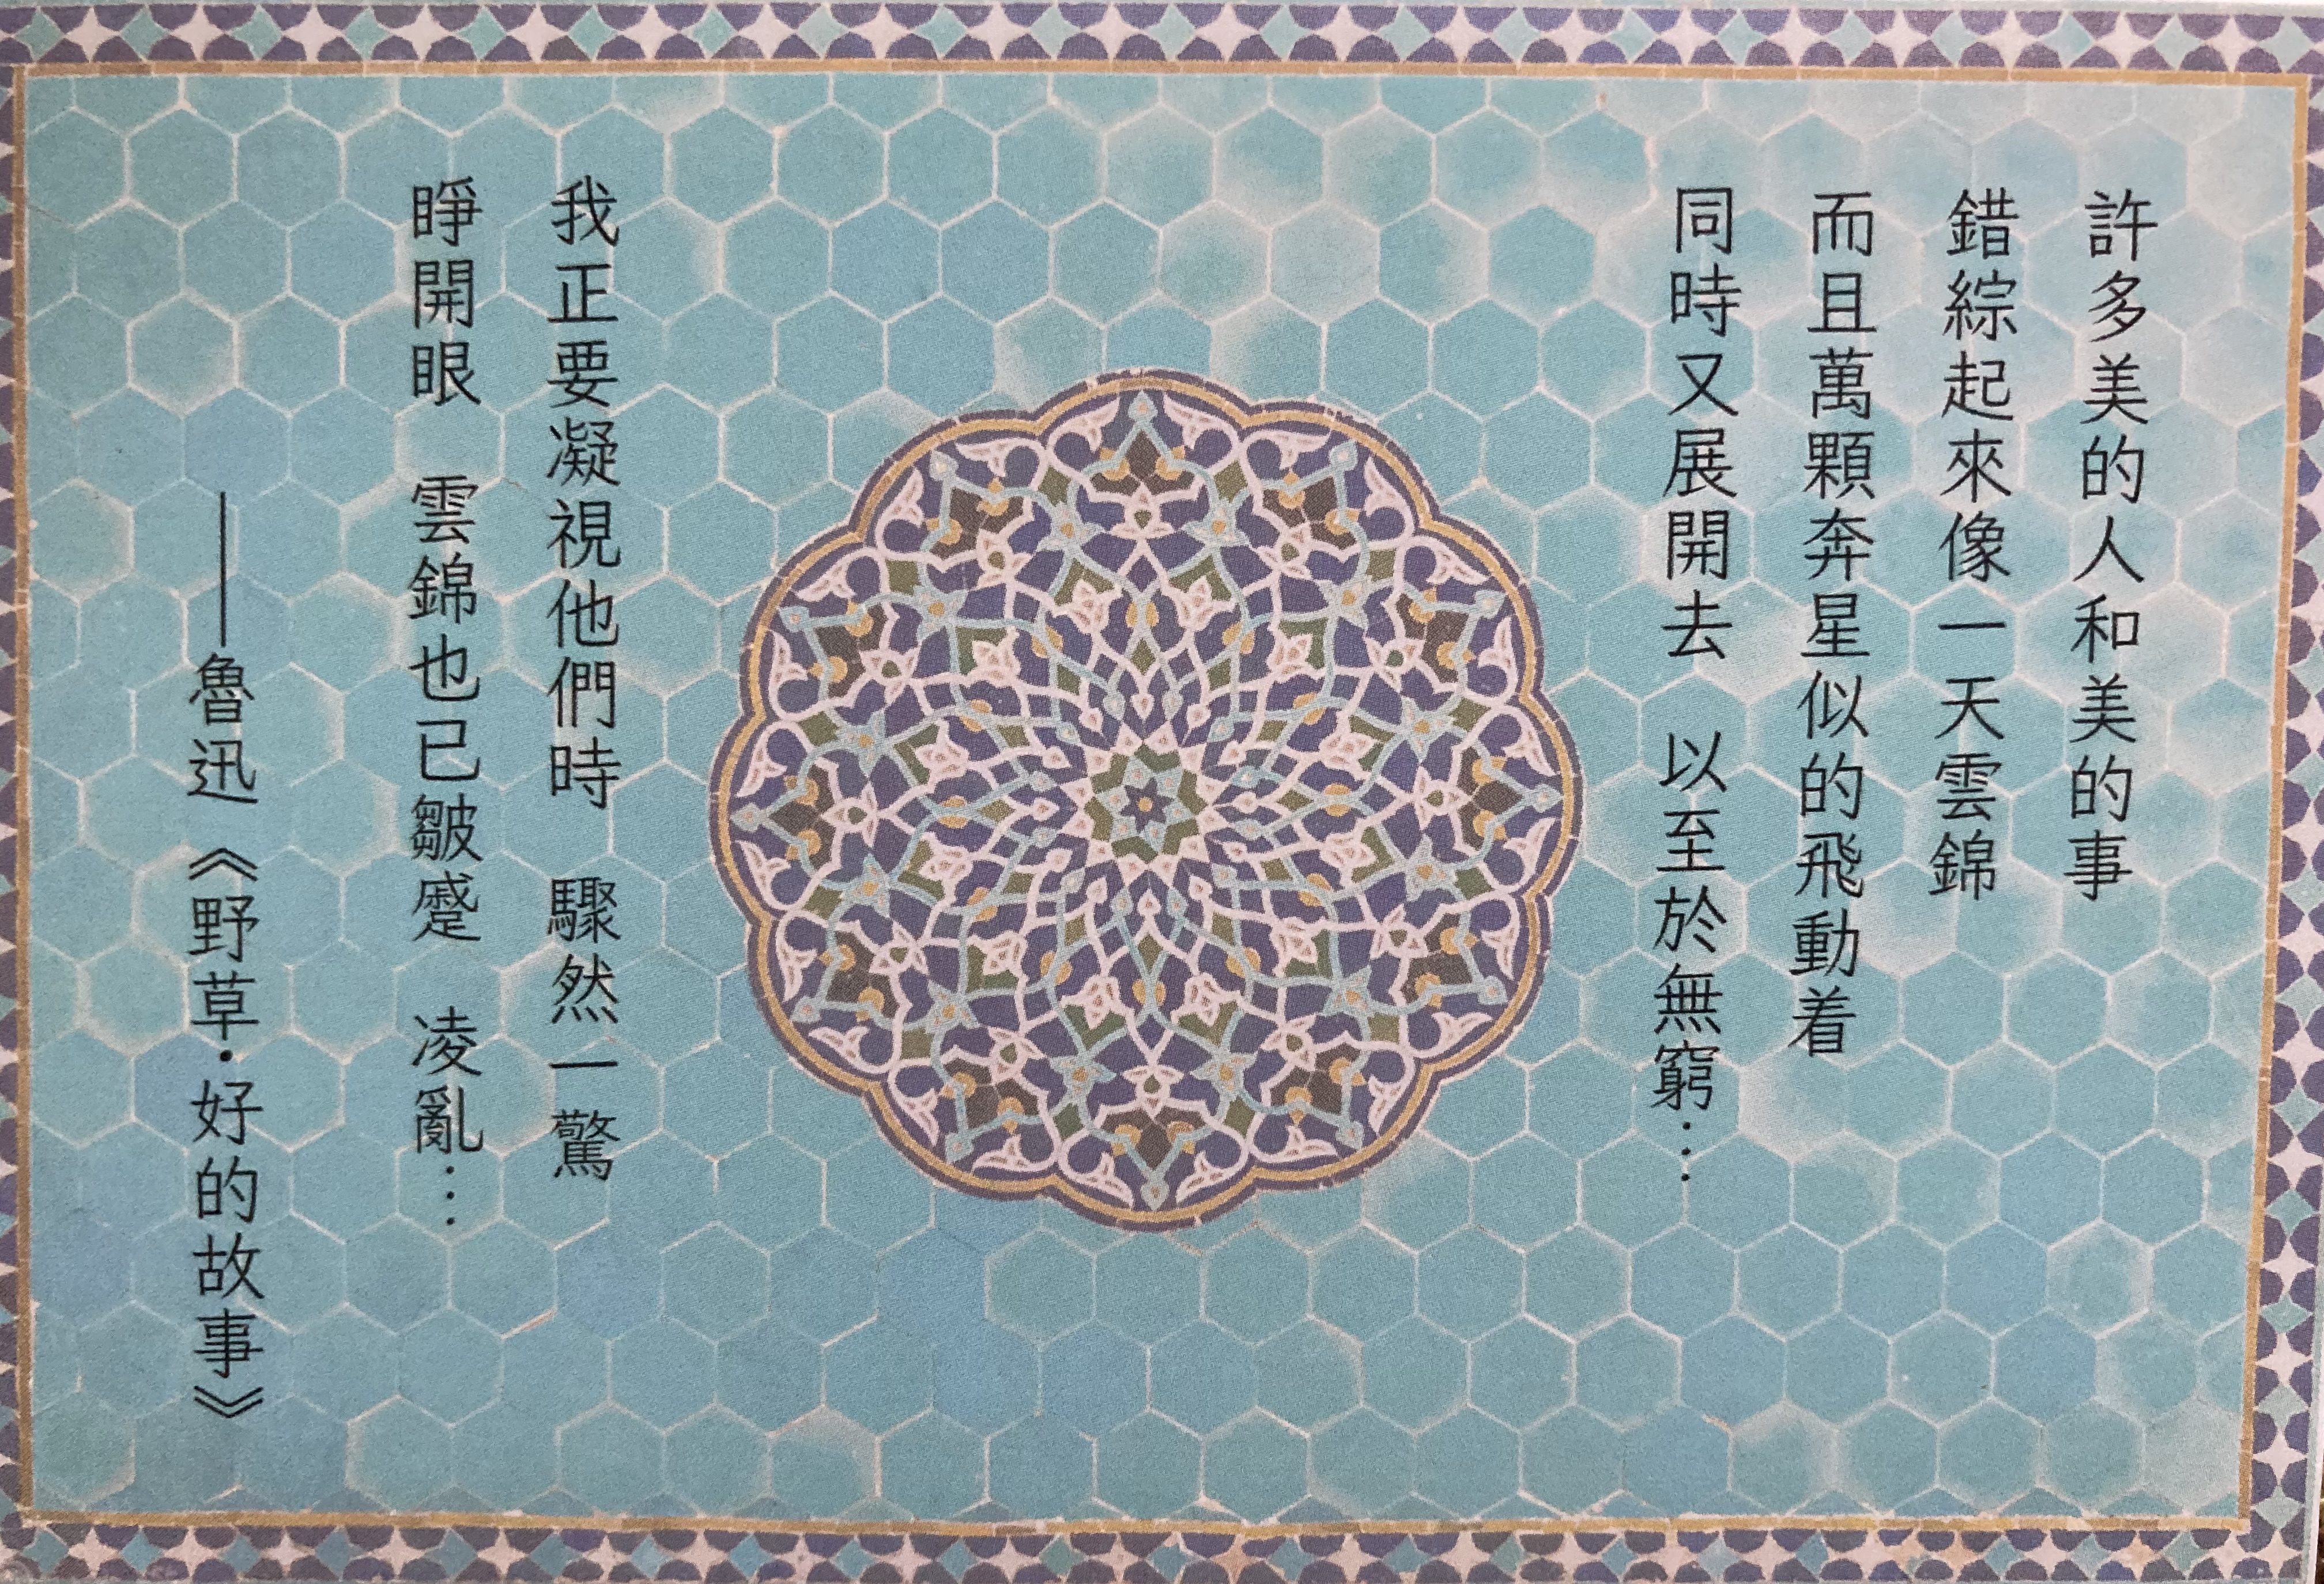 許多美的人和美的事
錯綜起來像一天雲錦
而且萬顆奔星似的飛動着
同時又展開去　以至於無窮…
我正要凝視他們時　驟然一驚
睜開眼　雲錦也已皺蹙　凌亂…
——魯迅《野草·好的故事》